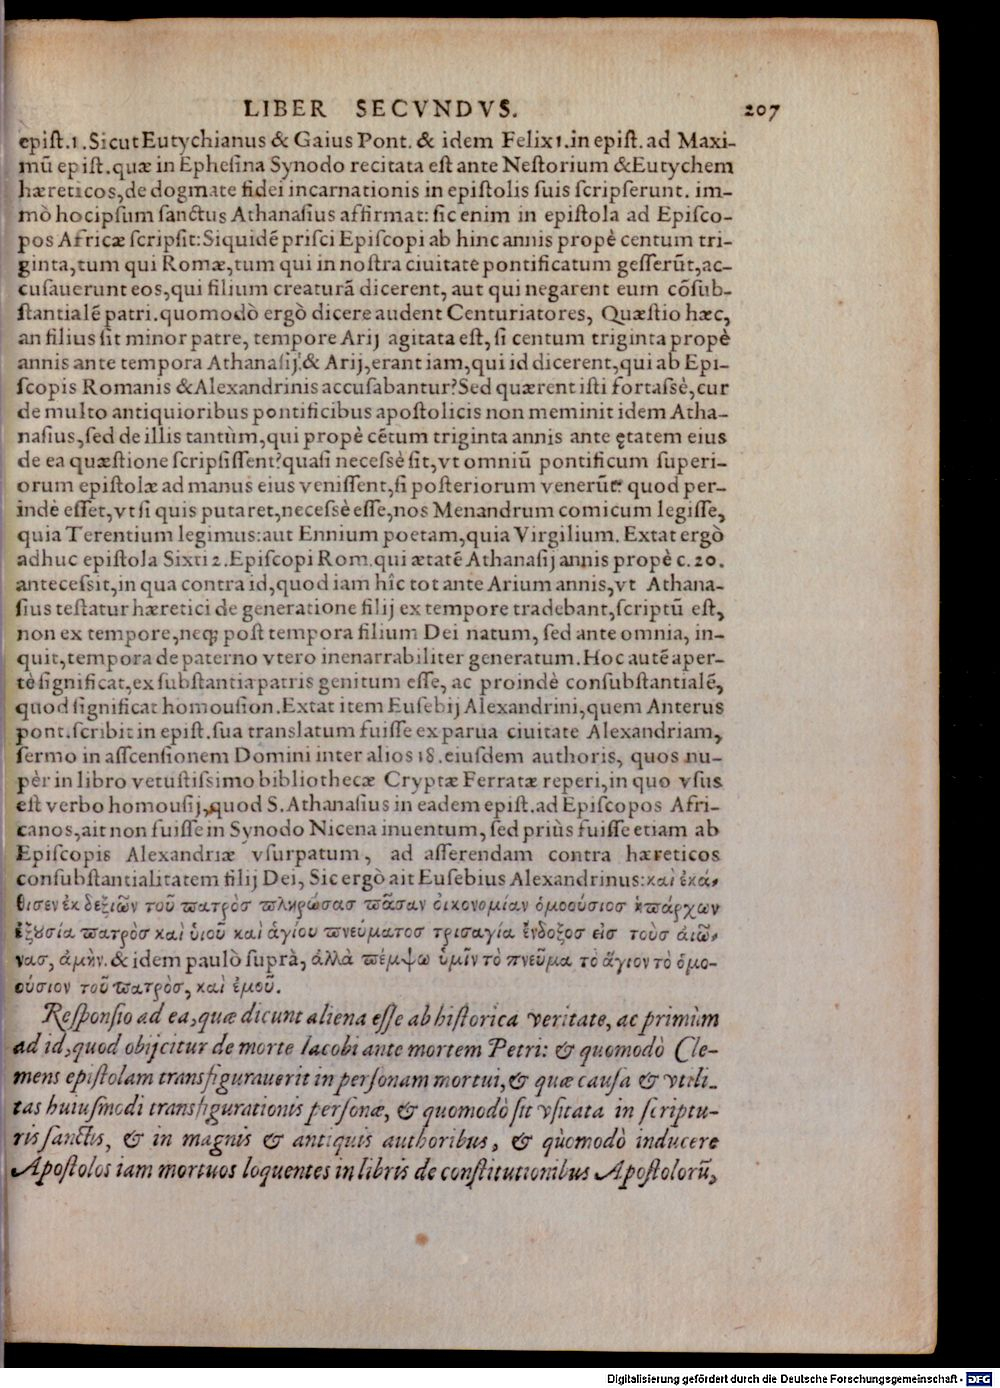 LIBER SECVNDVS. 207
epiſt.1.Sicut Eutychianus & Gaius Pont. & idem Felix 1.in epiſt. ad Maxi-
mū epiſt.quæ in Epheſina Synodo recitata eſt ante Neſtorium & Eutychem
hæreticos,de dogmate fidei incarnationis in epiſtolis ſuis ſcripſerunt. im-
mò hoc ipſum ſanctus Athanaſius affirmat: ſic enim in epiſtola ad Epiſco-
pos Africæ ſcripſit:Siquidē priſci Epiſcopi ab hinc annis propè centum tri-
ginta,tum qui Romæ,tum qui in noſtra ciuitate pontificatum geſſerūt,ac-
cuſauerunt eos,qui filium creaturā dicerent, aut qui negarent eum cōſub-
ſtantialē patri.quomodò ergò dicere audent Centuriatores, Quæſtio hæc,
an filius ſit minor patre, tempore Arij agitata eſt, ſi centum triginta propè
annis ante tempora Athanaſij,& Arij,erant iam,qui id dicerent,qui ab Epi-
ſcopis Romanis & Alexandrinis accuſabantur?Sed quærent iſti fortaſsè,cur
de multo antiquioribus pontificibus apoſtolicis non meminit idem Atha-
naſius,ſed de illis tantùm,qui propè cētum triginta annis ante ętatem eius
de ea quæſtione ſcripſiſſent?quaſi neceſsè ſit,vt omniū pontificum ſuperi-
orum epiſtolæ ad manus eius veniſſent,ſi poſteriorum venerūt? quod per-
indè eſſet,vt ſi quis putaret,neceſsè eſſe,nos Menandrum comicum legiſſe,
quia Terentium legimus:aut Ennium poetam,quia Virgilium. Extat ergò
adhuc epiſtola Sixti 2.Epiſcopi Rom.qui ætatē Athanaſij annis propè c.20.
anteceſsit,in qua contra id,quod iam hîc tot ante Arium annis,vt Athana-
ſius teſtatur hæretici de generatione filij ex tempore tradebant,ſcriptū eſt,
non ex tempore,neq; poſt tempora filium Dei natum, ſed ante omnia, in-
quit,tempora de paterno vtero inenarrabiliter generatum.Hoc autē aper-
tè ſignificat,ex ſubſtantia patris genitum eſſe, ac proindè conſubſtantialē,
quod ſignificat homouſion.Extat item Euſebij Alexandrini,quem Anterus
pont.ſcribit in epiſt.ſua translatum fuiſſe ex parua ciuitate Alexandriam,
ſermo in aſſcenſionem Domini inter alios 18.eiuſdem authoris, quos nu-
pèr in libro vetuſtiſsimo bibliothecæ Cryptæ Ferratæ reperi,in quo vſus
eſt verbo homouſij,quod S.Athanaſius in eadem epiſt.ad Epiſcopos Afri-
canos,ait non fuiſſe in Synodo Nicena inuentum, ſed priùs fuiſſe etiam ab
Epiſcopis Alexandriæ vſurpatum, ad aſſerendam contra hæreticos
conſubſtantialitatem filij Dei, Sic ergò ait Euſebius Alexandrinus:καὶ ἐκά-
θισεν ἐκ δεξιῶν τοῦ πατρὸσ πληρώσας πᾶσαν οἰκονομίαν ὁμοούσιος ὑπάρχων
ἐξουσία πατρὸσ καὶ ὑιοῦ καὶ ἁγίου πνεύματοσ τρισαγία ἔνδοξος εἰσ τοὺσ ἀιῶ-
νασ, ἀμὴν. & idem paulò ſuprà, ἀλλὰ πέμψω ὑμῖν τὸ πνεῦμα τὸ ἅγιον τὸ ὁμο-
ούσιον τοῦ πατρὸσ, καὶ ἐμοῦ.
Reſponſio ad ea,quæ dicunt aliena eſſe ab hiſtorica veritate, ac primùm
ad id,quod obijcitur de morte Iacobi ante mortem Petri: & quomodò Cle-
mens epiſtolam transfigurauerit in perſonam mortui,& quæ cauſa & vtili-
tas huiuſmodi transfigurationis perſonæ, & quomodò ſit vſitata in ſcriptu-
ris ſanctis, & in magnis & antiquis authoribus, & quomodò inducere
Apoſtolos iam mortuos loquentes in libris de conſtitutionibus Apoſtolorū,
Digitalisierung gefördert durch die Deutsche Forschungsgemeinschaft - DFG